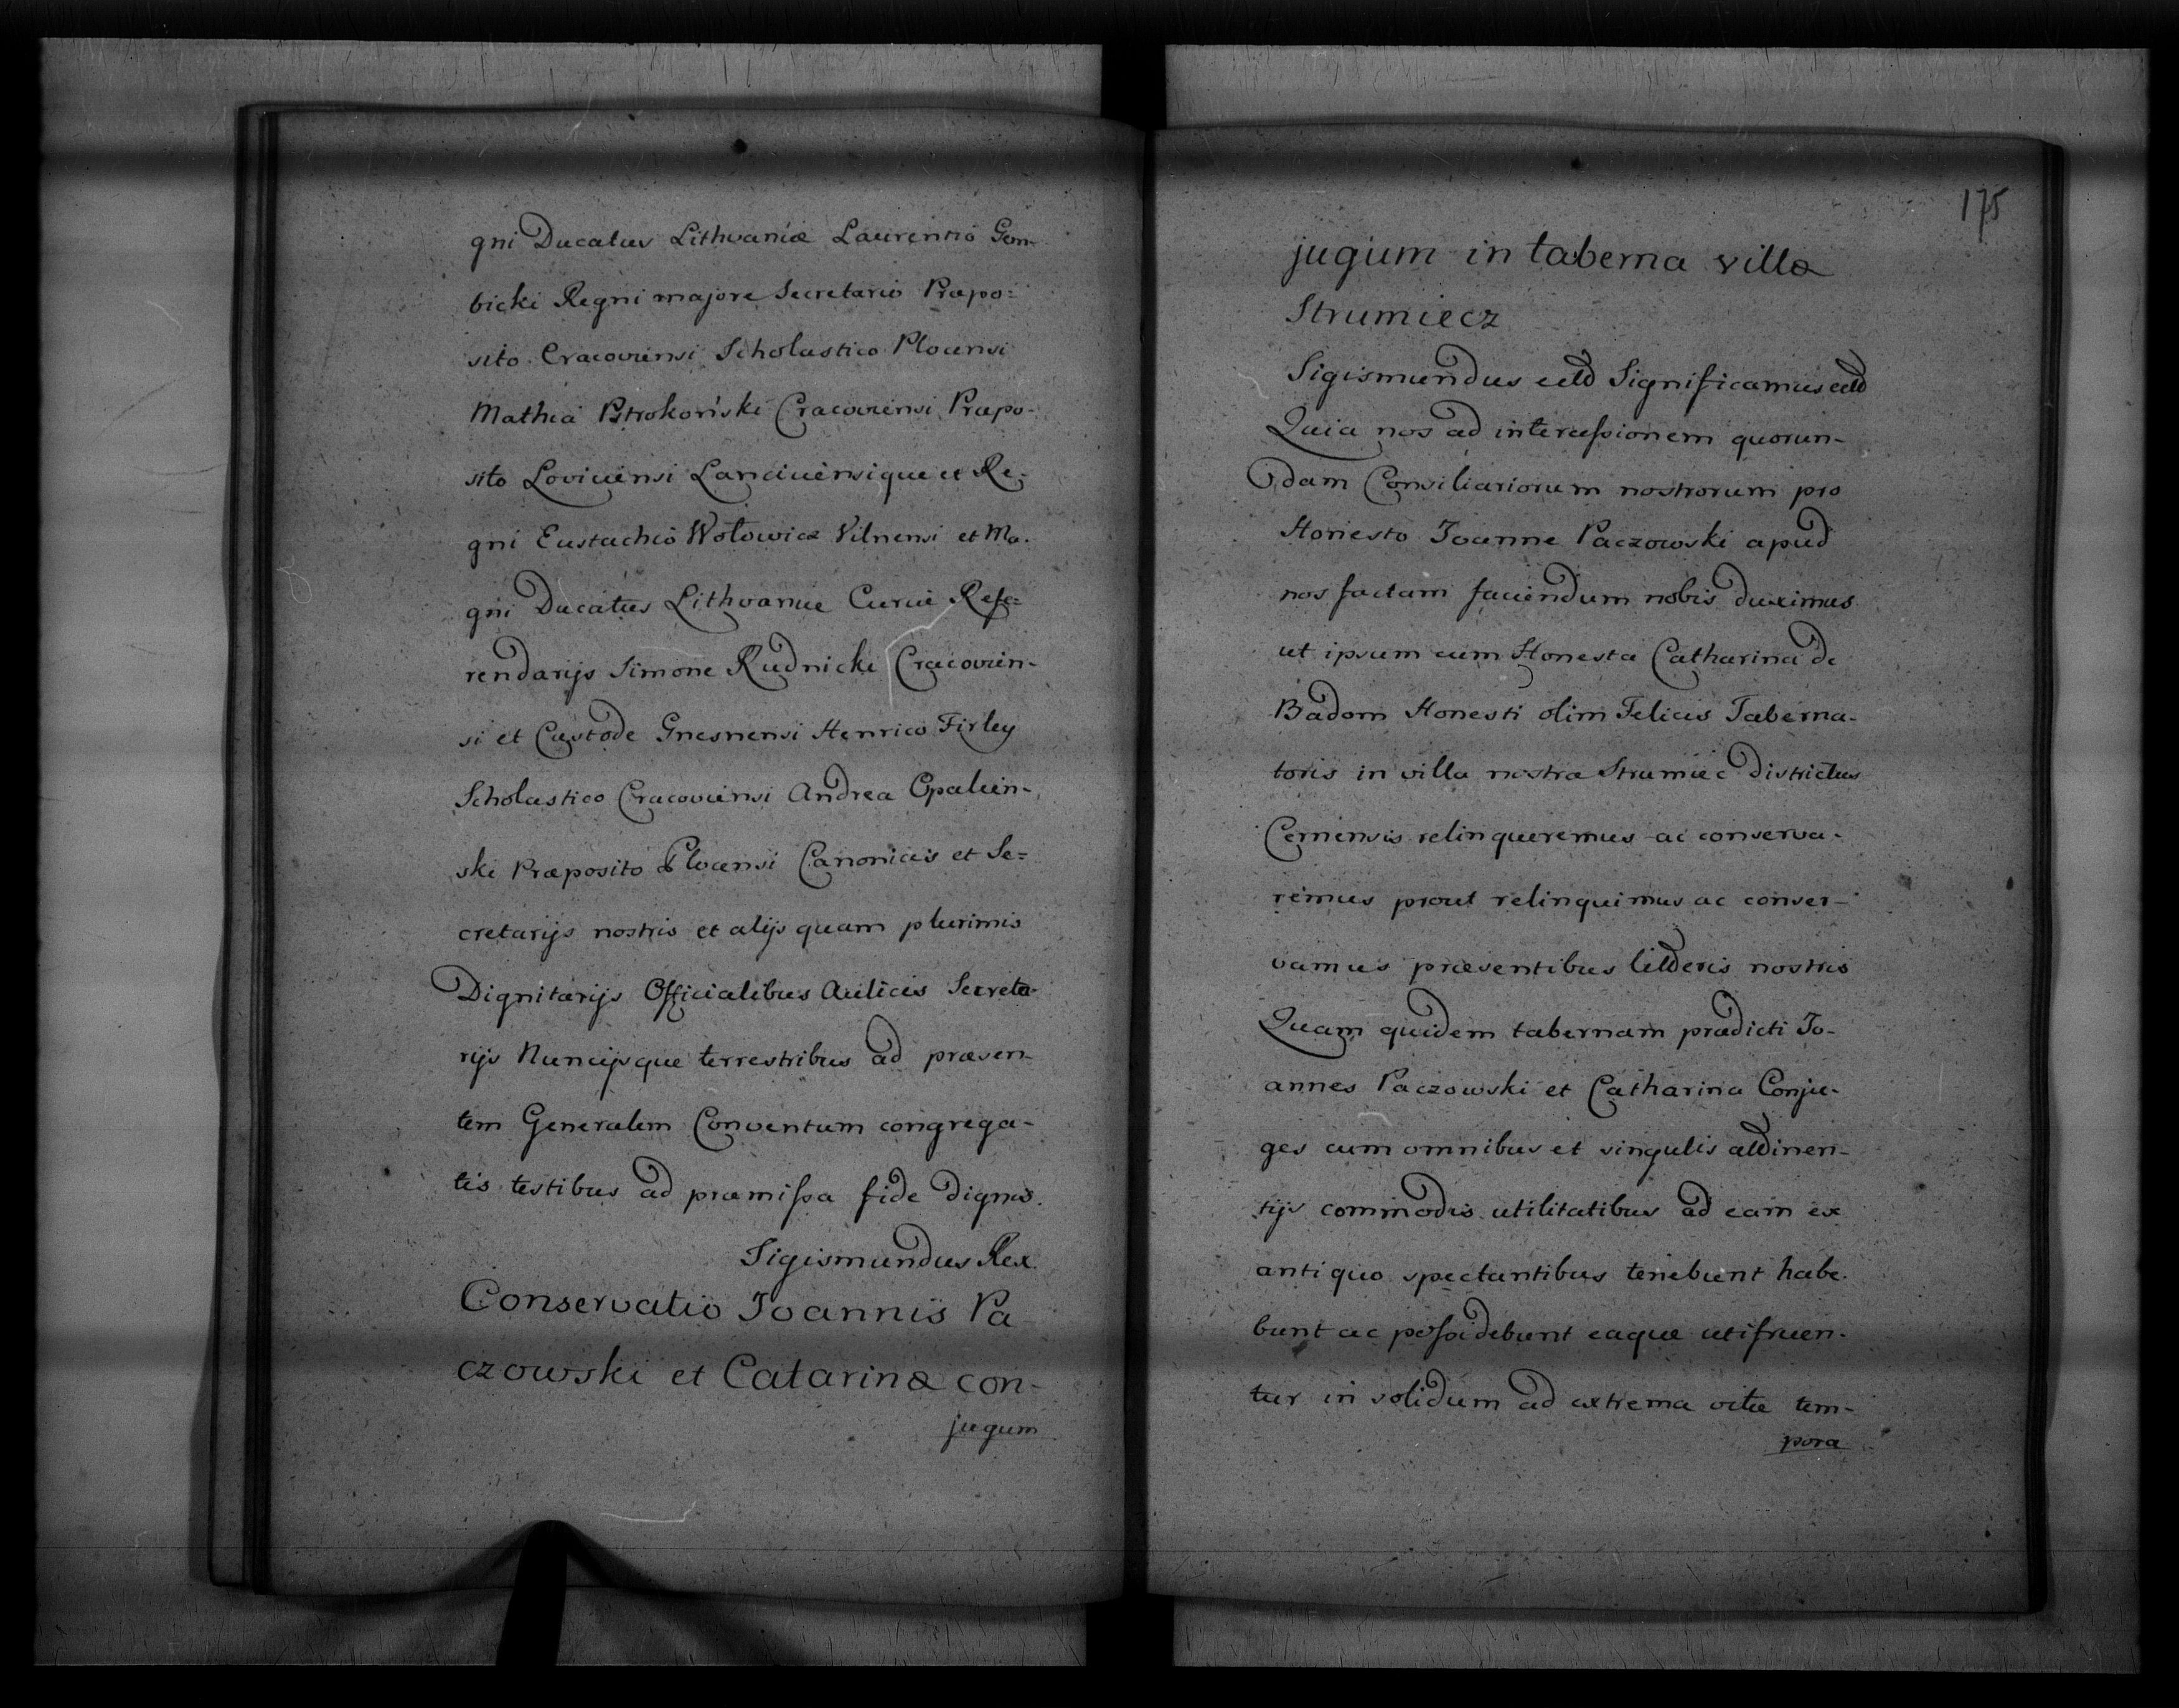 gni Ducatus Lithvaniæ Laurentio Gem-
bicki Regni majore Secretario Præpo=
sito Cracoviensi Scholastico Plocensi
Mathia Pstrokoński Cracoviensi Præpo-
sito Loviciensi Lanciciensique et Re-
gni Eustachio Wołowicz Vilnensi et Ma-
gni Ducatus Lithvaniæ Curiæ Refe=
rendarijs Simone Rudnicki Cracovien-
si et Custode Gnesnensi Henrico Firley
Scholastico Cracoviensi Andrea Opalien-
ski Præposito Plocensi Canonicis et Se=
cretarijs nostris et alijs quam plurimis
Dignitarijs Officialibus Aulicis Secreta-
rijs Nuncijsque terrestribus ad præsen-
tem Generalem Conventum congrega-
tis testibus ad præmissa fide dignis.
Sigismundus Rex.
Conservatio Joannis Pa
czowski et Catarinæ con-
jugum
175
jugum in taberna villæ
Strumiecz
Sigismundus Significamus
Quia nos ad intercessionem quorun-
dam Consiliariorum nostrorum pro
Honesto Joanne Paczowski apud
nos factam faciendum nobis duximus
ut ipsum cum Honesta Catharina de
Badom Honesti olim Felicis Taberna-
toris in villa nostra Strumiec districtus
Cernensis relinqueremus ac conserva-
remus prout relinquimus ac conser-
vamus præsentibus litteris nostris
Quam quidem tabernam prædicti Jo-
annes Paczowski et Catharina Conju-
ges cum omnibus et singulis attinen-
tijs commodis utilitatibus ad eam ex
antiquo spectantibus tenebunt habe-
bunt ac possidebunt eaque utifruen-
tur in solidum ad extrema vitæ tem-
pora